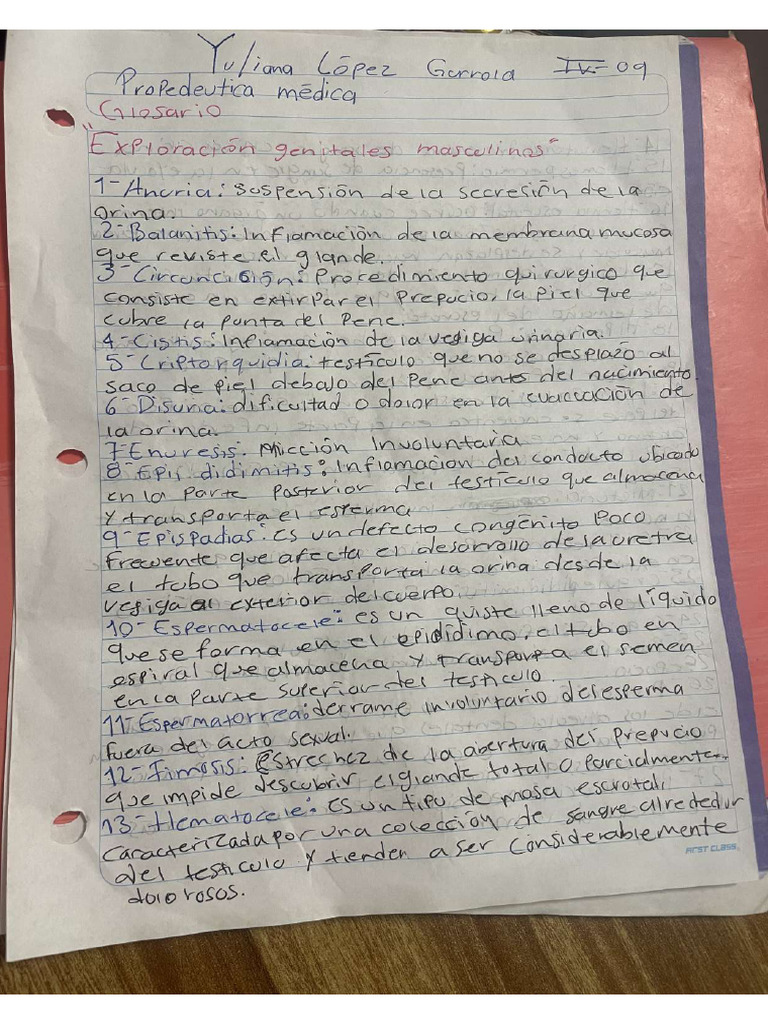 Yuliana López Gurrola IV-09
Propedeutica médica
Glosario
"Exploración genitales masculinos"
1-Anuria: Suspensión de la secresión de la
orina.
2-Balanitis: Inflamación de la membrana mucosa
que reviste el glande.
3-Circuncisión: Procedimiento quirurgico que
consiste en extirpar el prepucio, la piel que
cubre la punta del pene.
4-Cistis: Inflamación de la vegiga urinaria.
5-Criptorquidia: testículo que no se desplazó al
saco de piel debajo del pene antes del nacimiento
6-Disuria: dificultad o dolor en la evacuación de
la orina.
7-Enuresis: Micción Involuntaria
8-Epis didimitis: Inflamacion del conducto ubicado
en la parte posterior del testículo que almacena
y transporta el esterma
9-Epispadias: es un defecto congénito poco
frecuente que afecta el desorrollo de la uretra
el tubo que transporta la orina desde la
vegiga al exterior del cuerpo.
10-Espermatocele: es un quiste lleno de líquido
que se forma en el epidídimo, el tubo en
espiral que almacena y transporta el semen
en la parte superior del testículo.
11-Espermatorrea: derrame involuntario del esperma
fuera del acto sexual.
12-Fimosis: Estrechez de la abertura del prepucio
que impide descubrir el glande total o parcialmente.
13-Hematocele: Es un tipo de masa escrotal,
caracterizada por una colección de sangre alrededur
del testículo y tienden a ser considerablemente
dolorosos.
BEST CLASS